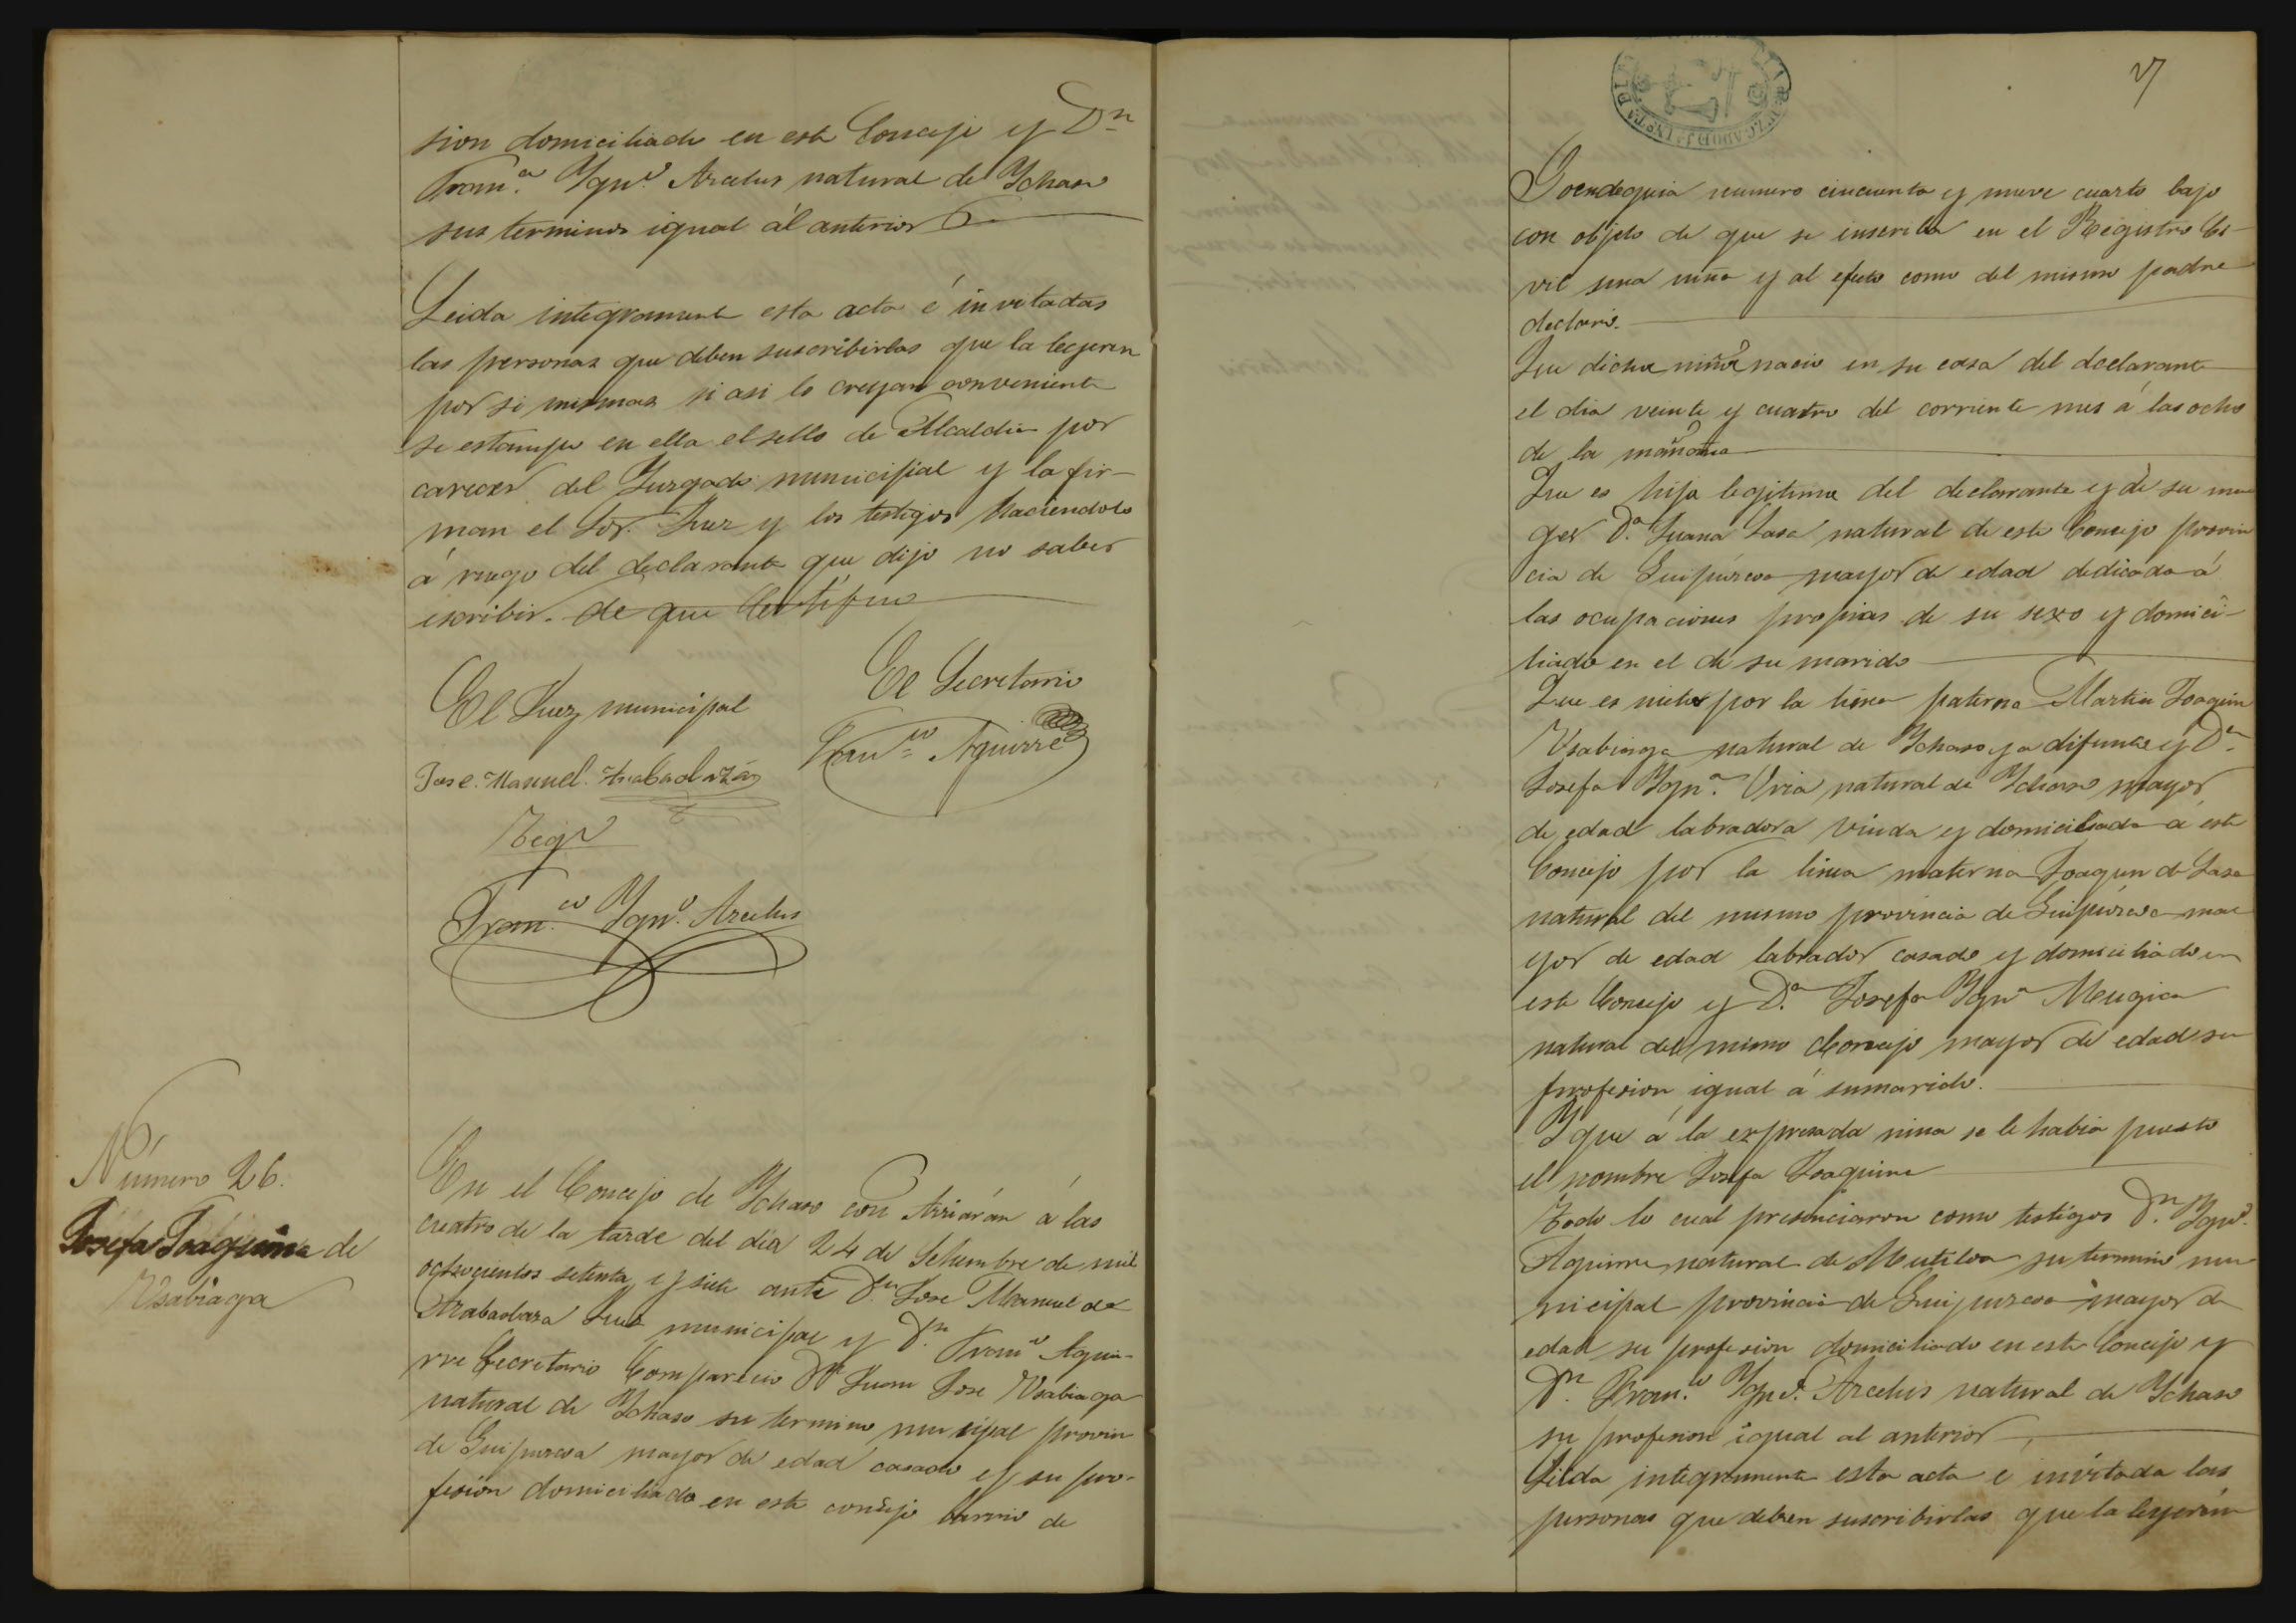 sion domiciliado en este Concejo y Dn
Franco. Ygno. Arcelus natural de Ychaso
sus terminos igual ál anterior
Leida integramente esta acta é invitadas
las personas que deben suscribirlas que la leyeren
por si mismas si asi lo creyan conveniente
se estampo en ella el sello de Alcaldia por
carecer del Juzgado municipal y la fir-
man el Sor. Juez y los testigos haciendolo
á ruego del declarante que dijo no saber
escribir. de que Certifico
El Juez municipal
El Secretario
Jose Manuel Arabaolaza
Franco Aguirre
Tego
Franco Ygno. Arcelus
Número 26.
Josefa Joaquina de
Usabiaga
En el Concejo de Ychaso con Arriarán á las
cuatro de la tarde del dia 24 de Setiembre de mil
ochocientos setenta y siete ante Dn Jose Manuel de
Arabaolaza Juez municipal y Dn. Franco Agui-
rre Secretario Comparecio Dn Juan Jose Usabiaga
natural de Ychaso su termino municipal provin
de Guipuzcoa mayor de edad casado y su pro-
fesión domiciliado en este concejo barrio de
Goendeguia numero cincuenta y nueve cuarto bajo
con objeto de que se inscriba en el Registro Ci-
vil una niña y al efecto como del mismo padre
declaro.
Que dicha niña nacio en su casa del declarante
el dia veinte y cuatro del corriente mes á las ocho
de la mañana
Que es hija legitima del declarante y de su mu
ger Da. Juana Lasa natural de este Concejo provin
cia de Guipúzcoa mayor de edad dedicada á
las ocupaciones propias de su sexo y domici-
liada en el de su marido
Que es nieta por la linea paterna Martin Joaquin
Usabiaga natural de Ychaso ya difunto y Da.
Josefa Ygna. Uria natural de Ychaso mayor
de edad labradora viuda y domiciliada á este
Concejo por la linea materna Joaquin de Lasa
natural del mismo provincia de Guipúzcoa ma
yor de edad labrador casado y domiciliado en
este Concejo y Da. Josefa Ygna Mugica
natural del mismo Concejo mayor de edad su
profesion igual á su marido.
Y que á la expresada nina se le habia puesto
el nombre Josefa Joaquina
Todo lo cual presenciaron como testigos Dn. Ygno.
Aguirre natural de Mutiloa su termino mu
nicipal provincia de Guipuzcoa mayor de
edad su profesion domiciliado en este Concejo y
Dn. Franco. Ygno. Arcelus natural de Ychaso
su profesion igual al anterior
Leida integramente esta acta é invitada las
personas que deben suscribirlas que la leyeren